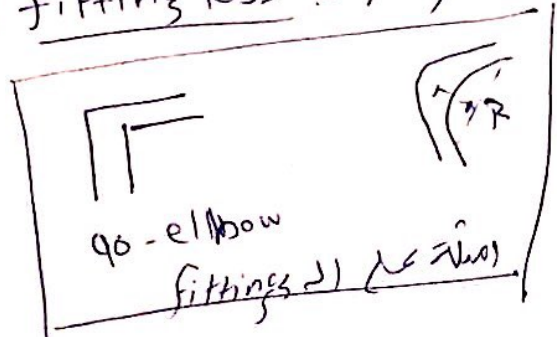 fitting loss
R
90-elbow
امثلة على ال fittings